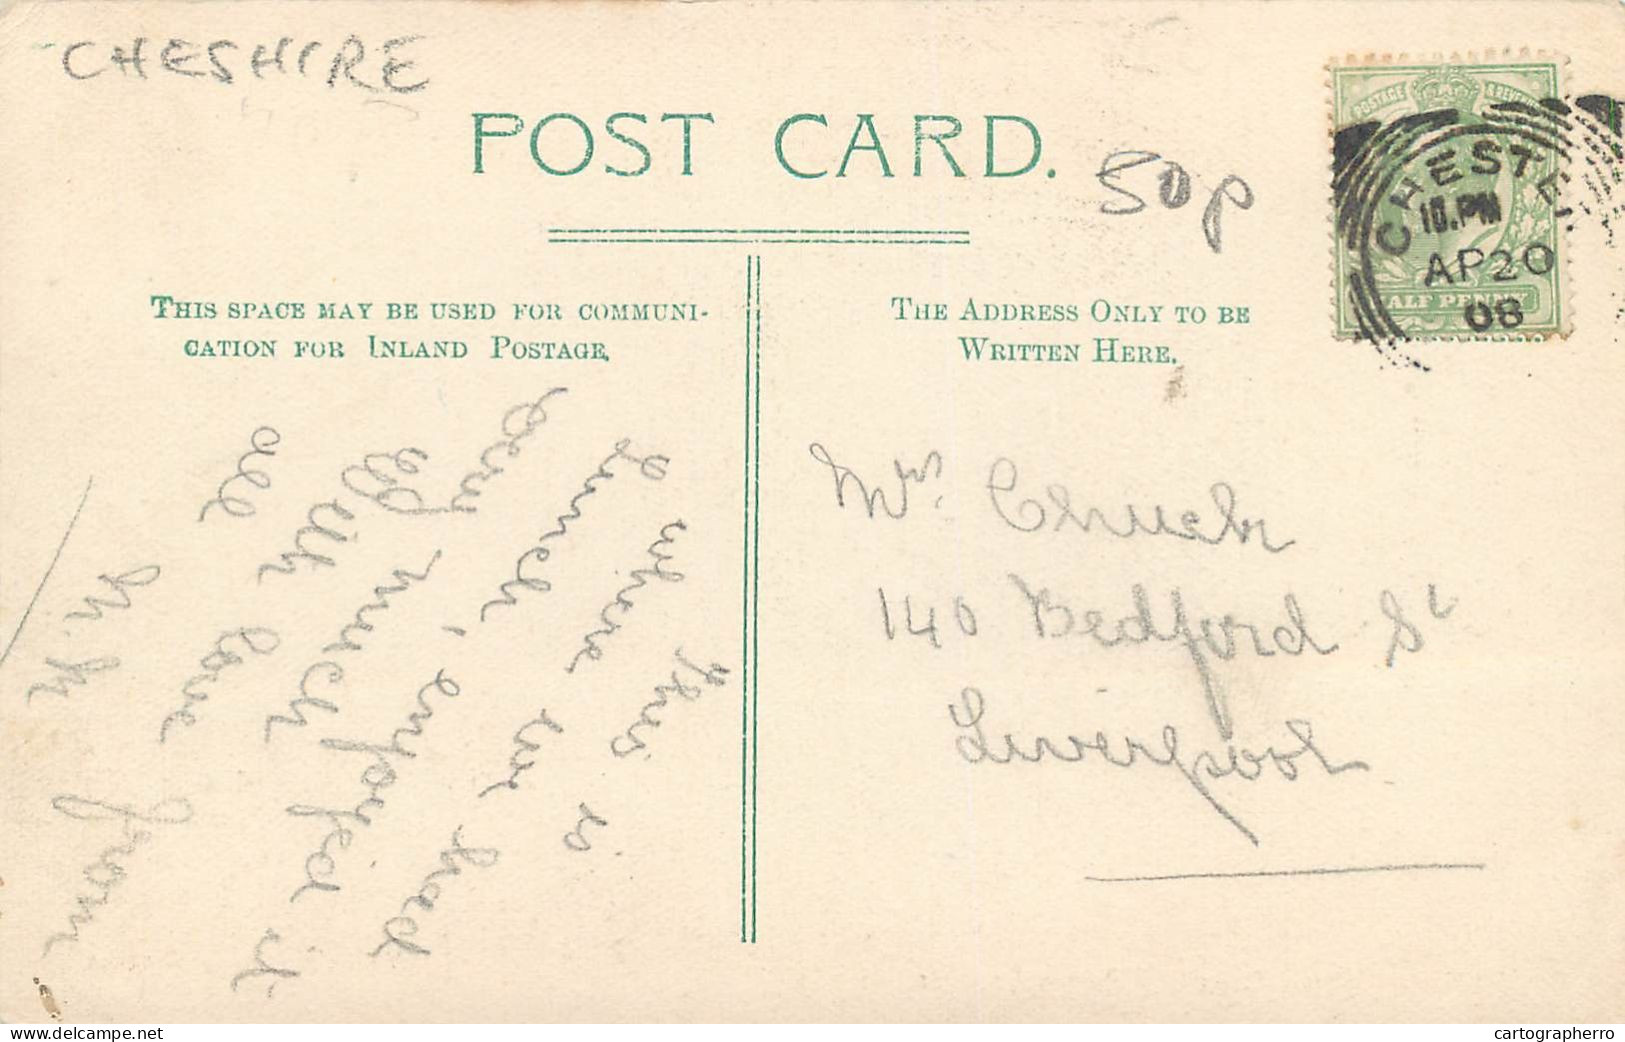 CHESHIRE
POST CARD.
50p
POSTAGE & REVENUE
CHESTER
10.PM
AP 20
08
HALF PENNY
THIS SPACE MAY BE USED FOR COMMUNI-
CATION FOR INLAND POSTAGE.
THE ADDRESS ONLY TO BE
WRITTEN HERE.
This is
where we had
Lunch, enjoyed it
very much
With love from
all
M. M
Mrs. Church
140 Bedford St
Liverpool
delcampe.net
cartographerro